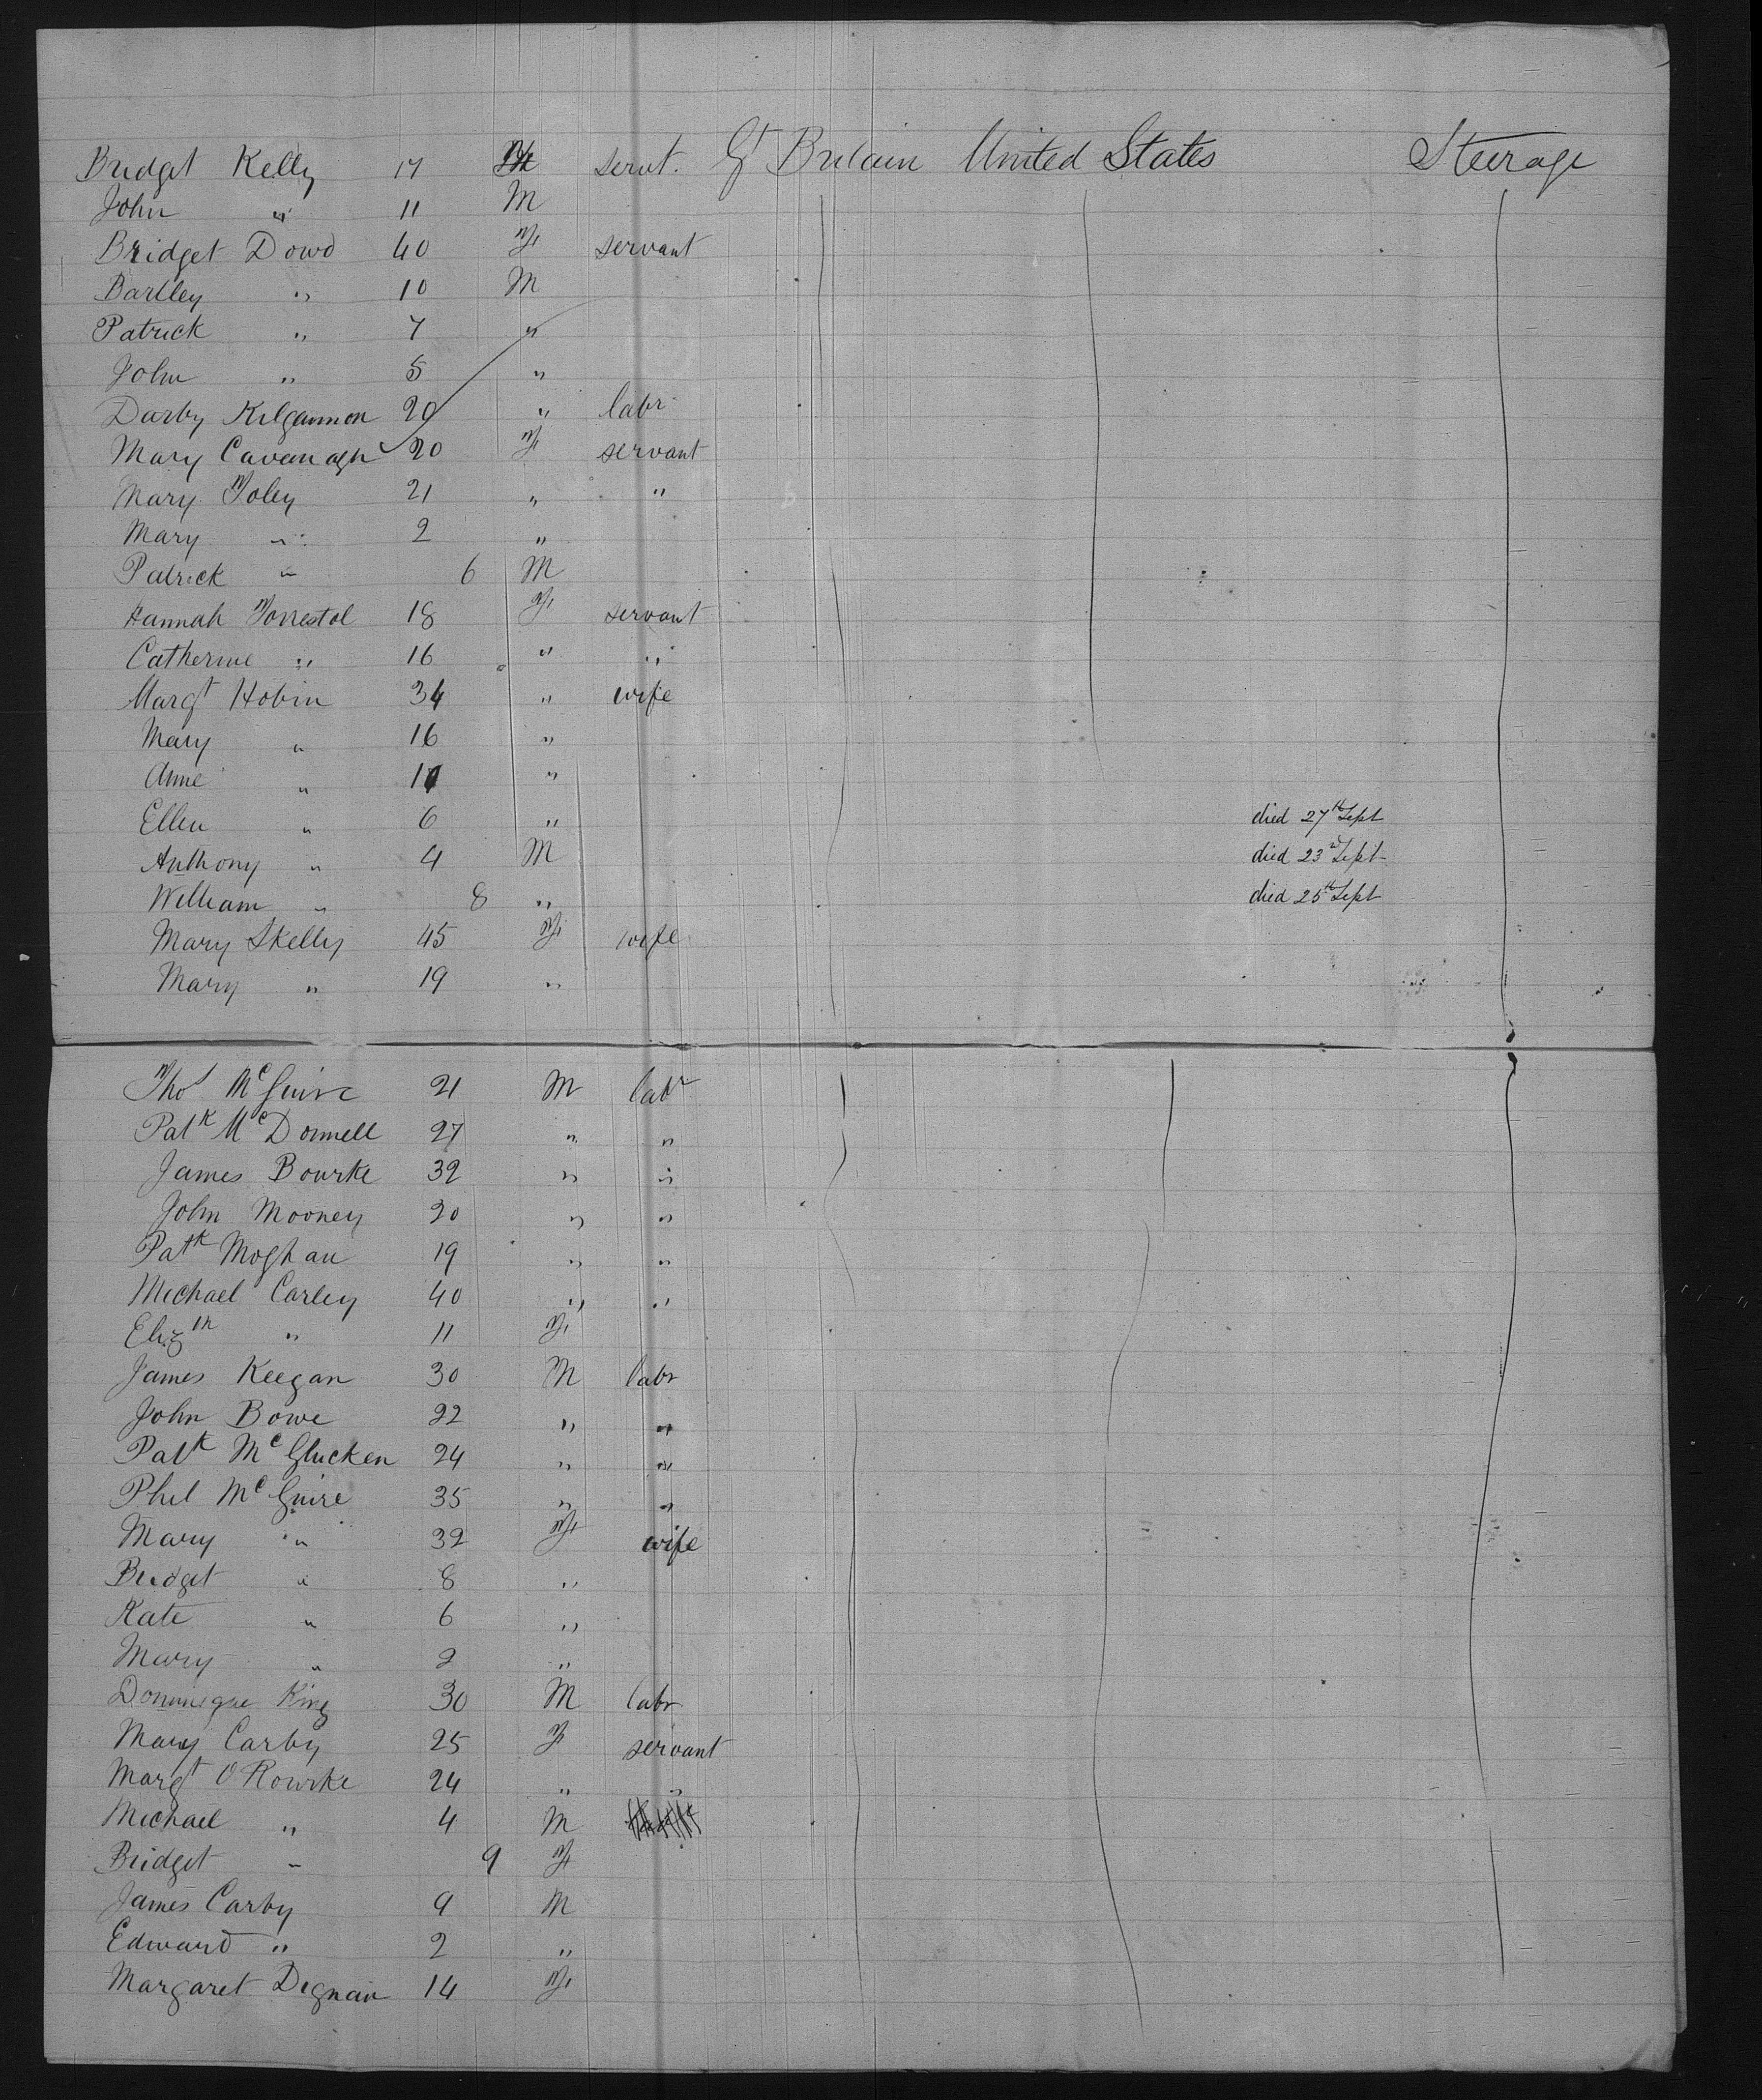 Bridget Kelly 17 F servt. Gt Britain United States Steerage
John " 11 M
Bridget Dowd 40 F servant
Bartley " 10 M
Patrick " 7 "
John " 5 "
Darby Kilgannon 20 " labr
Mary Cavanagh 20 F servant
Mary Foley 21 " "
Mary " 2 "
Patrick " 6 M
Hannah Forrestol 18 F servant
Catherine " 16 " "
Margt Hobin 34 " wife
Mary " 16 "
Anne " 11 "
Ellen " 6 " died 27th Sept
Anthony " 4 M died 23d Sept
William " 8 " died 25th Sept
Mary Skelly 45 F wife
Mary " 19 "
Thos McGuire 21 M labr
Patk McDonnell 27 " "
James Bourke 32 " "
John Mooney 20 " "
Patk Moghan 19 " "
Michael Carley 40 " "
Elizth " 11 F
James Keegan 30 M labr
John Bowe 22 " "
Patk McGlucken 24 " "
Phil McGuire 35 " "
Mary " 32 F wife
Bridget " 8 "
Kate " 6 "
Mary " 2 "
Dominique King 30 M labr
Mary Carby 25 F servant
Margt O Rourke 24 " "
Michael " 4 M
Bridget " 9 F
James Carby 9 M
Edward " 2 "
Margaret Dignan 14 F